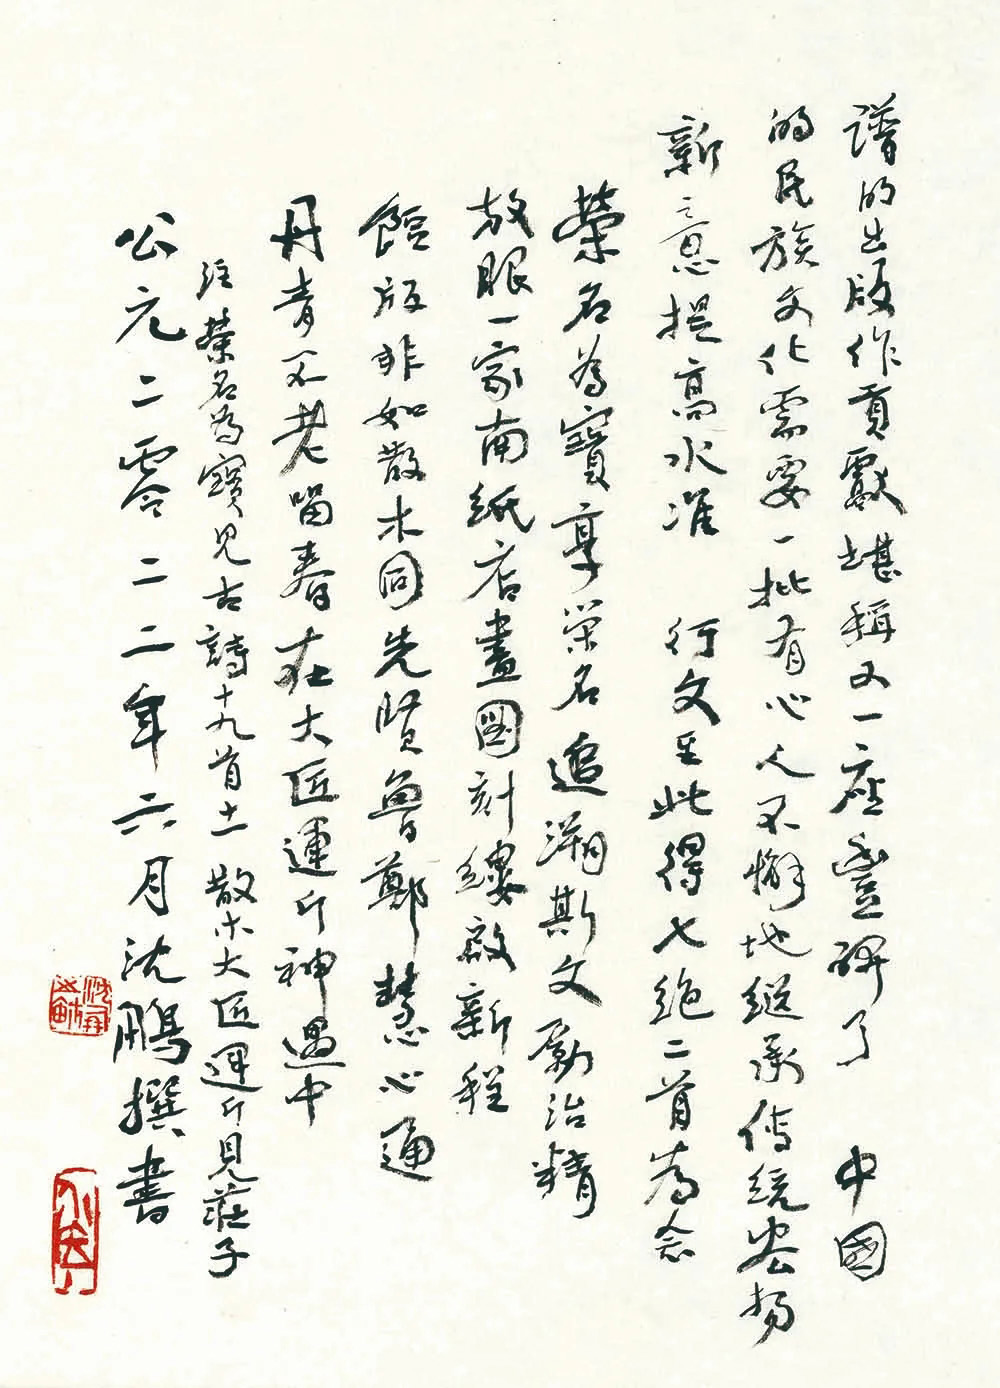 譜的出版作貢獻堪稱又一座豐碑了 中國
的民族文化需要一批有心人不懈地继承传统宏扬
新意提高水准 行文至此得七絕二首為念
榮名為寶享荣名追溯斯文勵治精
放眼一家南紙店畫圖刻鏤啟新程
餖版非如散木同先賢魯鄭慧心通
丹青不老留春在大匠運斤神遇中
注榮名為寶見古詩十九首十一 散木大匠運斤見莊子
公元二零二二年六月沈鵬撰書